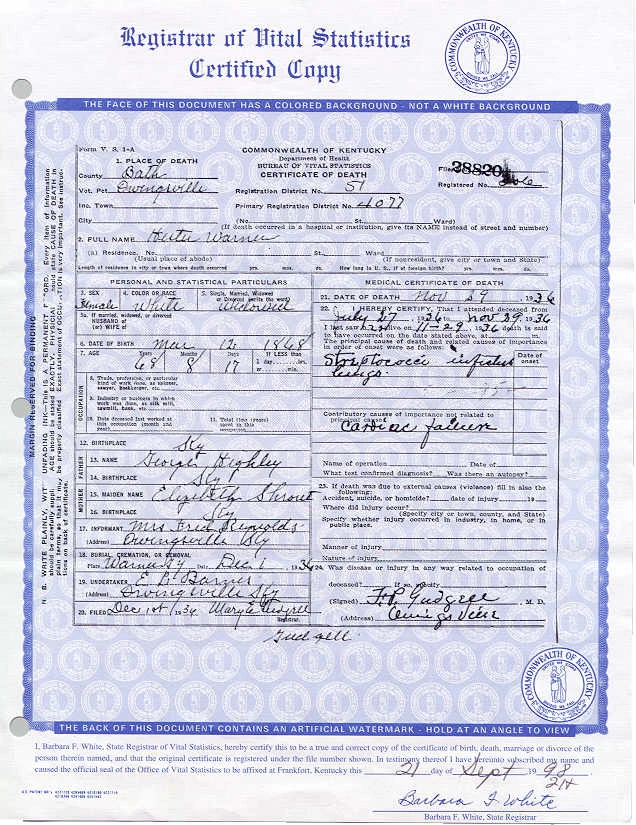 Registrar of Vital Statistics
Certified Copy
COMMONWEALTH OF KENTUCKY
THE FACE OF THIS DOCUMENT HAS A COLORED BACKGROUND - NOT A WHITE BACKGROUND
Form V. S. 1-A
COMMONWEALTH OF KENTUCKY
Department of Health
BUREAU OF VITAL STATISTICS
CERTIFICATE OF DEATH
File 28820
Registered No.
1. PLACE OF DEATH
County Bath
Vot. Pct. Owingsville
Registration District No. 51
Inc. Town
Primary Registration District No. 4077
City (No. St. Ward)
(If death occurred in a hospital or institution, give its NAME instead of street and number)
2. FULL NAME Hester Warner
(a) Residence. No. St., Ward
(Usual place of abode) (If nonresident, give city or town and State)
Length of residence in city or town where death occurred yrs. mos. ds. How long in U. S., if of foreign birth? yrs. mos. ds.
PERSONAL AND STATISTICAL PARTICULARS
3. SEX Female
4. COLOR OR RACE White
5. Single, Married, Widowed or Divorced (write the word) Widowed
5a. If married, widowed, or divorced
HUSBAND of
(or) WIFE of
6. DATE OF BIRTH Mar 12 1868
7. AGE Years 68 Months 8 Days 17 IF LESS than
1 day, hrs.
or min.
OCCUPATION
8. Trade, profession, or particular
kind of work done, as spinner,
sawyer, bookkeeper, etc.
9. Industry or business in which
work was done, as silk mill,
sawmill, bank, etc.
10. Date deceased last worked at
this occupation (month and
year)
11. Total time (years)
spent in this
occupation
12. BIRTHPLACE Ky
FATHER
13. NAME George Highley
14. BIRTHPLACE Ky
MOTHER
15. MAIDEN NAME Elizabeth Shrout
16. BIRTHPLACE Ky
17. INFORMANT Mrs Reynolds
(Address) Owingsville Ky
18. BURIAL, CREMATION, OR REMOVAL
Place Date Dec 1, 1936
19. UNDERTAKER E B Barnes
(Address) Owingsville Ky
20. FILED Dec 1st, 1936 Mary Gudgell
Registrar.
Gudgell
MEDICAL CERTIFICATE OF DEATH
21. DATE OF DEATH Nov 29, 1936
22. I HEREBY CERTIFY, That I attended deceased from
July 27, 1936, to Nov 29, 1936
I last saw h alive on 11-29, 1936 death is said
to have occurred on the date stated above, at
The principal cause of death and related causes of importance
in order of onset were as follows:
Date of onset
Streptococci
lungs
Contributory causes of importance not related to
principal cause:
Cardiac failure
Name of operation Date of
What test confirmed diagnosis? Was there an autopsy?
23. If death was due to external causes (violence) fill in also the
following:
Accident, suicide, or homicide? date of injury 19
Where did injury occur?
(Specify city or town, county, and State)
Specify whether injury occurred in industry, in home, or in
public place.
Manner of injury
Nature of injury
24. Was disease or injury in any way related to occupation of
deceased? If so, specify
(Signed) M. D.
(Address) Owingsville
MARGIN RESERVED FOR BINDING
COMMONWEALTH OF KENTUCKY
THE BACK OF THIS DOCUMENT CONTAINS AN ARTIFICIAL WATERMARK - HOLD AT AN ANGLE TO VIEW
I, Barbara F. White, State Registrar of Vital Statistics, hereby certify this to be a true and correct copy of the certificate of birth, death, marriage or divorce of the
person therein named, and that the original certificate is registered under the file number shown. In testimony thereof I have hereunto subscribed my name and
caused the official seal of the Office of Vital Statistics to be affixed at Frankfort, Kentucky this 21 day of Sept 19 98
Barbara F. White
Barbara F. White, State Registrar